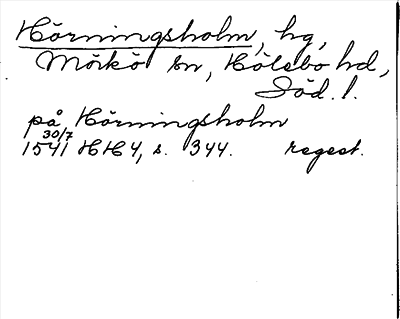 Hörningsholm, hg,
Mörkö sn, Hölebo hd,
Söd. l.
på Hörningsholm
30/7
1541 HH 4, s. 344. regest.